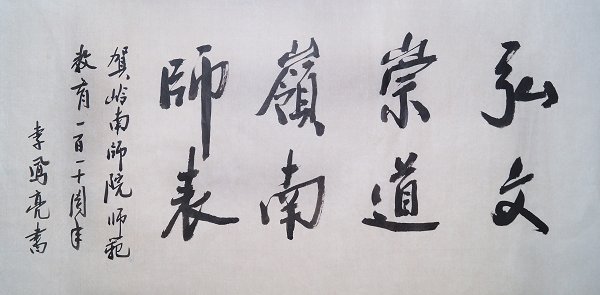 弘文
崇道
嶺南
師表
賀岭南师院师范
教育一百一十周年
李鳳亮書